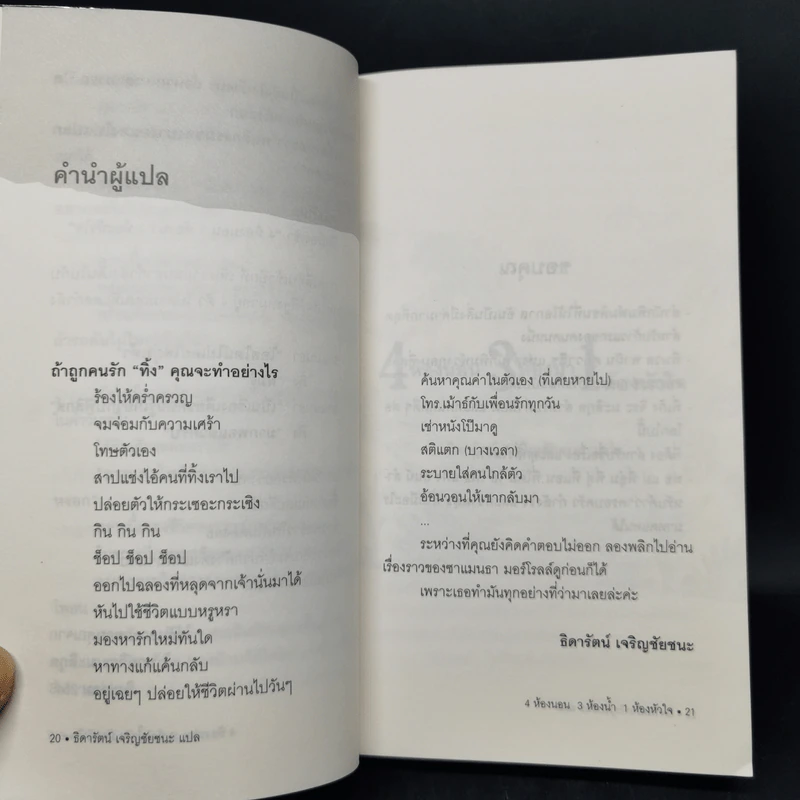 คำนำผู้แปล
ถ้าถูกคนรัก “ทิ้ง” คุณจะทำอย่างไร
ร้องไห้คร่ำครวญ
จมจ่อมกับความเศร้า
โทษตัวเอง
สาปแช่งไอ้คนที่ทิ้งเราไป
ปล่อยตัวให้กระเซอะกระเซิง
กิน กิน กิน
ช็อป ช็อป ช็อป
ออกไปฉลองที่หลุดจากเจ้านั่นมาได้
หันไปใช้ชีวิตแบบหรูหรา
มองหารักใหม่ทันใด
หาทางแก้แค้นกลับ
อยู่เฉยๆ ปล่อยให้ชีวิตผ่านไปวันๆ
20 • ธิดารัตน์ เจริญชัยชนะ แปล
ค้นหาคุณค่าในตัวเอง (ที่เคยหายไป)
โทร.เม้าธ์กับเพื่อนรักทุกวัน
เช่าหนังโป๊มาดู
สติแตก (บางเวลา)
ระบายใส่คนใกล้ตัว
อ้อนวอนให้เขากลับมา
...
ระหว่างที่คุณยังคิดคำตอบไม่ออก ลองพลิกไปอ่าน
เรื่องราวของซาแมนธา มอร์โรลล์ดูก่อนก็ได้
เพราะเธอทำมันทุกอย่างที่ว่ามาเลยล่ะค่ะ
ธิดารัตน์ เจริญชัยชนะ
4 ห้องนอน 3 ห้องน้ำ 1 ห้องหัวใจ • 21